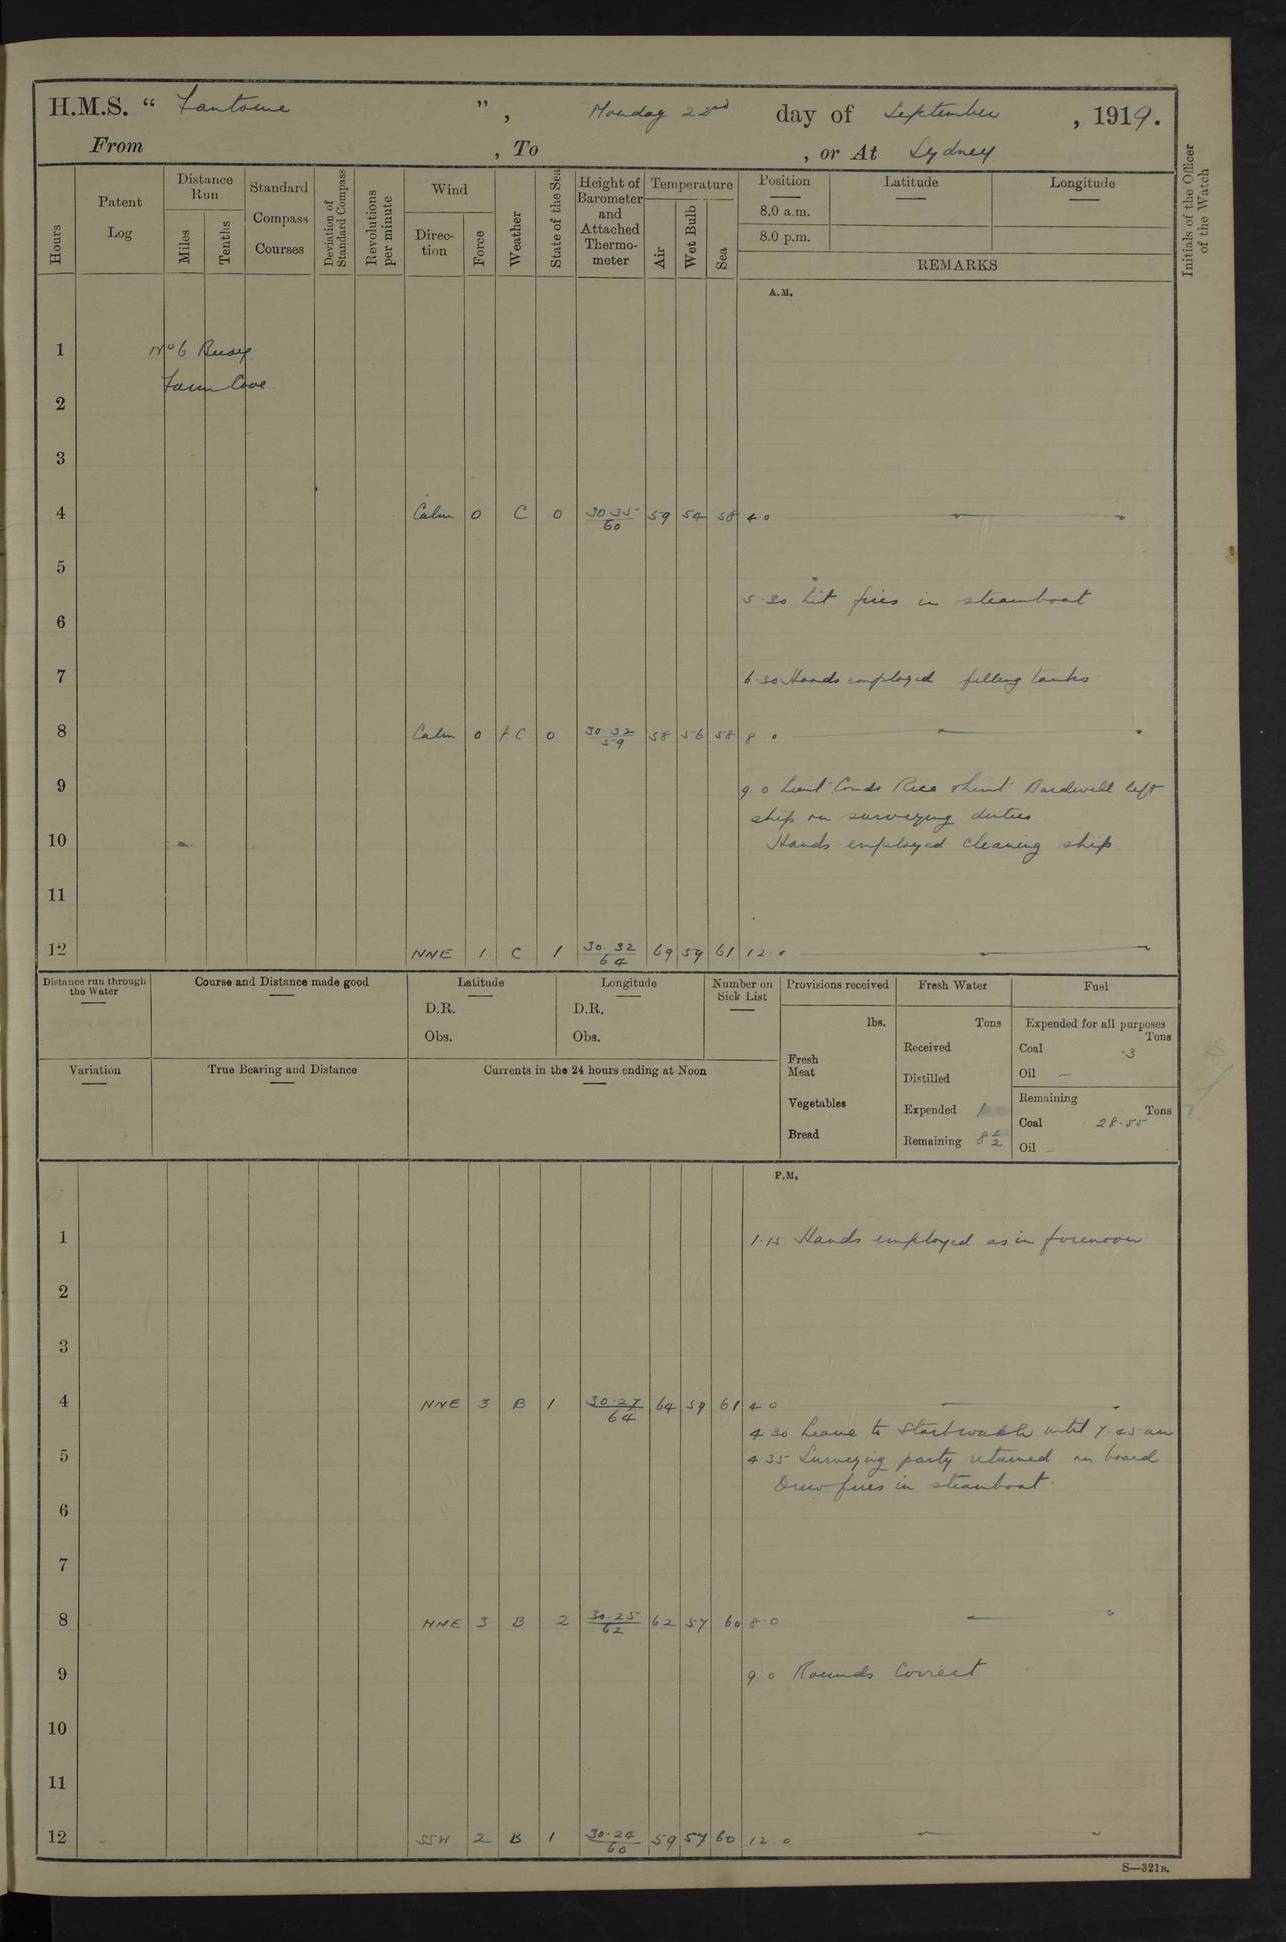 H.M.S. “ Fantome ” , Monday 22nd day of September , 1919.
From , To , or At Sydney
Hours
Patent Log
Distance Run
Miles
Tenths
Standard Compass Courses
Deviation of Standard Compass
Revolutions per minute
Wind
Direc-tion
Force
Weather
State of the Sea
Height of Barometer and Attached Thermo-meter
Temperature
Air
Wet Bulb
Sea
Position
8.0 a.m.
8.0 p.m.
Latitude
Longitude
REMARKS
Initials of the Officer of the Watch
A.M.
1 No 6 Buoy
Farm Cove
2
3
4 Calm 0 C 0 30.35/60 59 54 58 4.0
5
5.30 Lit fires in steamboat
6
7 6.30 Hands employed filling tanks
8 Calm 0 C 0 30.32/59 58 56 58 8.0
9 9.0 Lieut Comdr Rice & Lieut Bardwell left
ship on surveying duties
10 Hands employed cleaning ship
11
12 NNE 1 C 1 30.32/64 69 59 61 12.0
Distance run through the Water
Course and Distance made good
Latitude
D.R.
Obs.
Longitude
D.R.
Obs.
Number on Sick List
Provisions received
lbs.
Fresh Meat
Vegetables
Bread
Fresh Water
Tons
Received
Distilled
Expended 1
Remaining 8 1/2
Fuel
Expended for all purposes
Tons
Coal .3
Oil —
Remaining
Tons
Coal 28.55
Oil -
Variation
True Bearing and Distance
Currents in the 24 hours ending at Noon
P.M.
1 1.15 Hands employed as in forenoon
2
3
4 NNE 3 B 1 30.27/64 64 59 61 4.0
4.30 Leave to Starb watch until 7.45 am
5 4.35 Surveying party returned on board
Drew fires in steamboat.
6
7
8 NNE 3 B 2 30.25/62 62 57 60 8.0
9 9.0 Rounds Correct
10
11
12 SSW 2 B 1 30.24/60 59 57 60 12.0
S—321B.